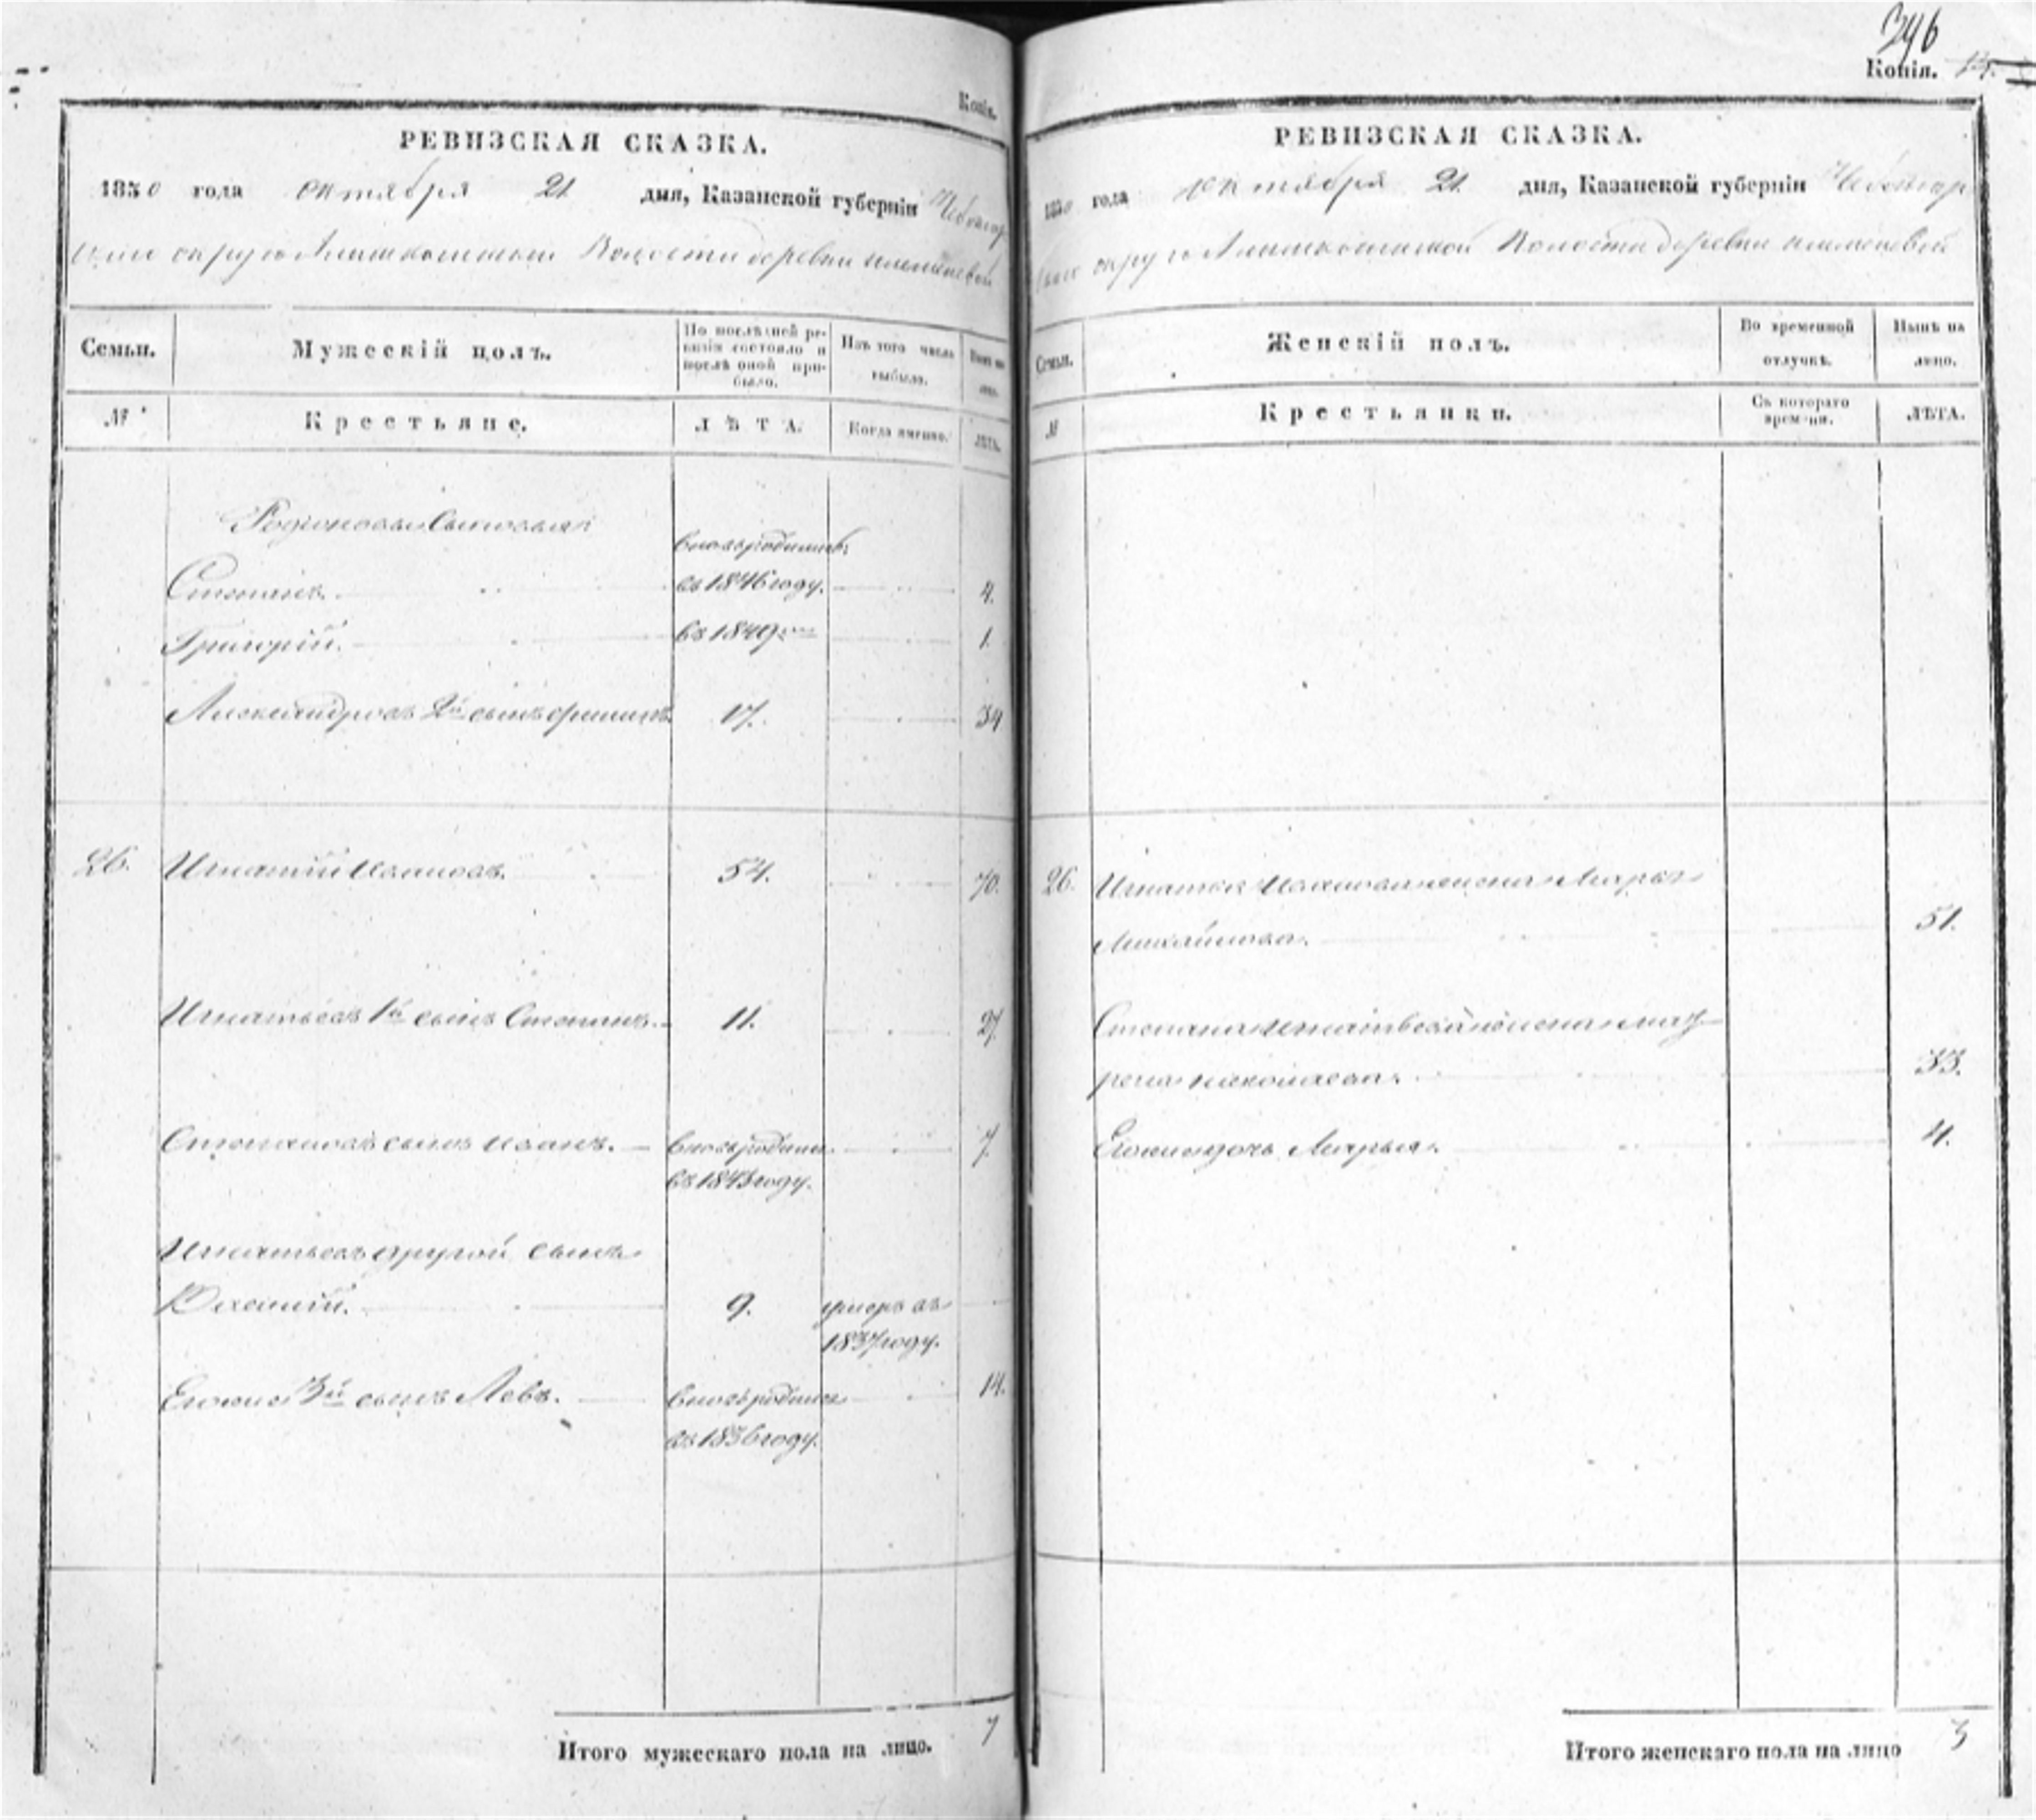 Копія.
РЕВИЗСКАЯ СКАЗКА.
1850 года октября 21 дня, Казанской губерніи Чебоксар
округа Волости деревни
Семьи.
Мужескій полъ.
По послѣдней ре-
визіи состояло и
послѣ оной при-
было.
Изъ того числа
выбыло.
Нынѣ на
лицо.
№
Крестьяне.
ЛѢТА.
Когда именно.
ЛѢТА.
Родионовы Сыновья:
вновьрожденный
Степанъ. въ 1846 году. 4.
Григорій. въ 1849 1.
Александровъ 2й сынъ 17. 34
26. Игнатій Ивановъ. 54. 70.
Игнатьевъ 1й сынъ Степанъ. 11. 27.
Степановъ сынъ Иванъ. вновьродився 7.
въ 1843 году.
Игнатьевъ другой сынъ
9. умеръ въ
1837 году.
Егоже 3й сынъ Левъ. вновьродився 14.
въ 1836 году.
Итого мужескаго пола на лицо. 7
396
Копія.
РЕВИЗСКАЯ СКАЗКА.
1850 года октября 21 дня, Казанской губерніи Чебоксар
округа Волости деревни
Семьи.
Женскій полъ.
Во временной
отлучкѣ.
Нынѣ на
лицо.
№
Крестьянки.
Съ котораго
времени.
ЛѢТА.
26. Игнатья Иванова жена Марья
Михайлова. 51.
Степана Игнатьева жена Мав
рена Николаева. 33.
Егоже дочь Марья. 4.
Итого женскаго пола на лицо 3